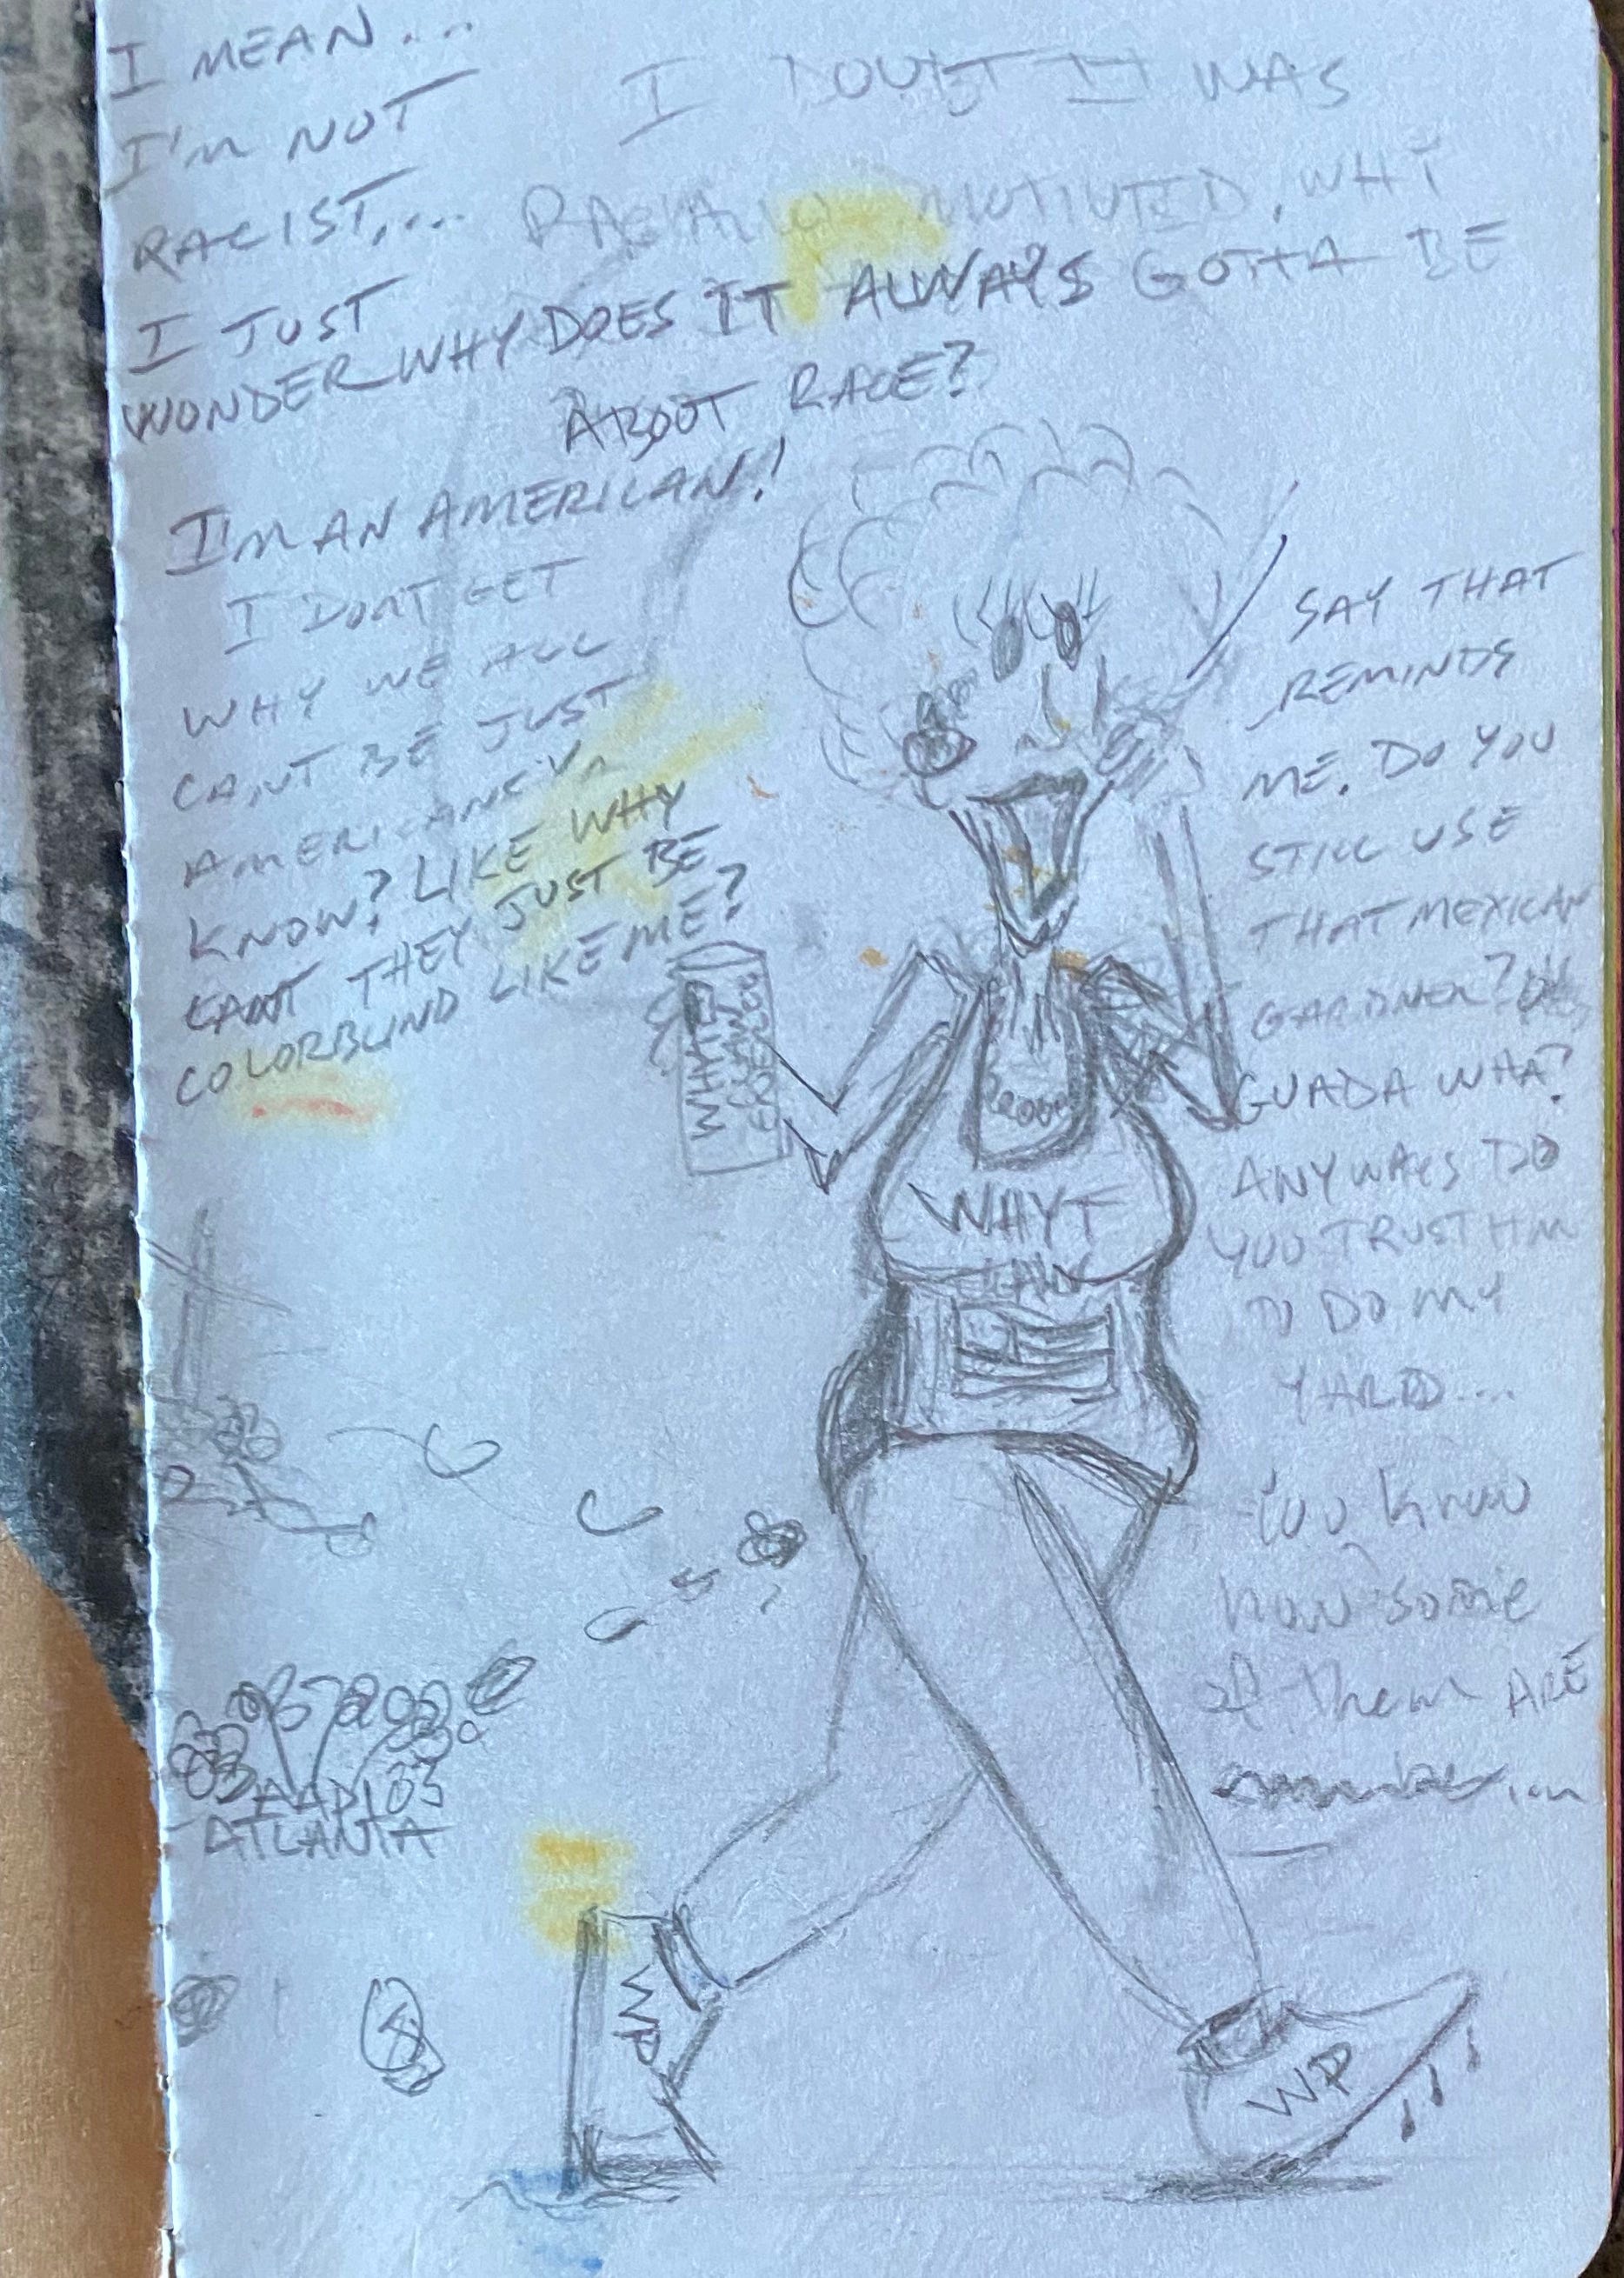 I MEAN...
I'M NOT
RACIST,...
I JUST
WONDER WHY DOES IT ALWAYS GOTTA BE
ABOUT RACE?
I DOUBT IT WAS
MOTIVTED, WHY
I'M AN AMERICAN!
I DONT GET
WHY WE ALL
CANT BE JUST
AMERICANS YA
KNOW? LIKE WHY
CANT THEY JUST BE
COLORBLIND LIKE ME?
SAY THAT
REMINDS
ME. DO YOU
STILL USE
THAT MEXICAN
GARDNER?
GUADA WHA?
ANYWAYS DO
YOU TRUST HIM
TO DO MY
YARD....
You know
how some
of them ARE
WHYTE
WHYT
AAPI
ATLANTA
WP
WP